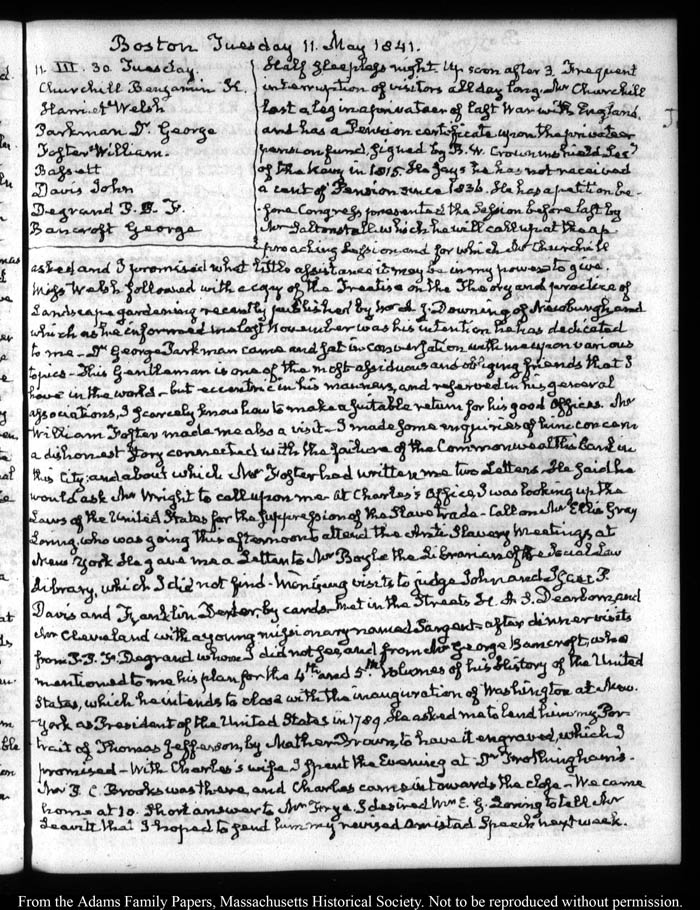 Boston Tuesday 11. May 1841.
11. III. 30. Tuesday.
Churchill Benjamin K.
Harriet Welsh
Parkman Dr. George
Foster William.
Bassett
Davis John
Degrand P. P. F.
Bancroft George
Half sleepless night. Up soon after 3. Frequent
interruption of visitors all day long. Mr Churchill
lost a leg in a privateer of last War with England,
and has a Pension certificate upon the privateer
pension fund, signed by B. W. Crowninshield Secy
of the Navy in 1815. He says he has not received
a cent of Pension since 1836. He has a petition be-
fore Congress presented the Session before last by
Mr Saltonstall which he will call up at the ap-
proaching Session and for which Mr Churchill
asked and I promised what little assistance it may be in my power to give.
Miss Welsh followed with a copy of the Treatise on the Theory and practice of
Landscape gardening recently published by A. J. Downing of Newburgh and
which as he informed me last November was his intention he has dedicated
to me – Dr George Parkman came and sat in conversation with me upon various
topics – This Gentleman is one of the most assiduous and obliging friends that I
have in the world – but eccentric in his manners, and reserved in his general
associations, I scarcely know how to make a suitable return for his good Offices. Mr
William Foster made me also a visit – I made some enquiries of him concern
a dishonest story connected with the failure of the Commonwealth Bank in
this City; and about which Mr Foster had written me two Letters. He said he
would ask Mr Wright to call upon me. At Charles's Office, I was looking up the
Laws of the United States for the suppression of the Slave trade – Call on Mr Ellis Gray
Loring, who was going this afternoon to attend the Anti Slavery Meetings, at
New York. He gave me a Letter to Mr Boyle the Librarian of the Social Law
Library, which I did not find – Morning visits to judge John and Isaac P.
Davis and Franklin Dexter, by cards. Met in the Streets H. A. S. Dearborn, and
Mr Cleveland with a young missionary named Sargent – after dinner visits
from P. P. F. Degrand whom I did not see, and from Mr George Bancroft, who
mentioned to me his plan for the 4th and 5th Volumes of his History of the United
States, which he intends to close with the inauguration of Washington at New-
York as President of the United States in 1789. He asked me to lend him my Por-
trait of Thomas Jefferson, by Mather Brown, to have it engraved, which I
promised – With Charles's wife I spent the Evening at Dr Frothingham's –
Mr P. C. Brooks was there, and Charles came in towards the close – We came
home at 10. Short answer to Mr Frye. I desired Mr E. G. Loring to tell Mr
Leavitt that I hoped to send him my revised Amistad Speech next week.
From the Adams Family Papers, Massachusetts Historical Society. Not to be reproduced without permission.